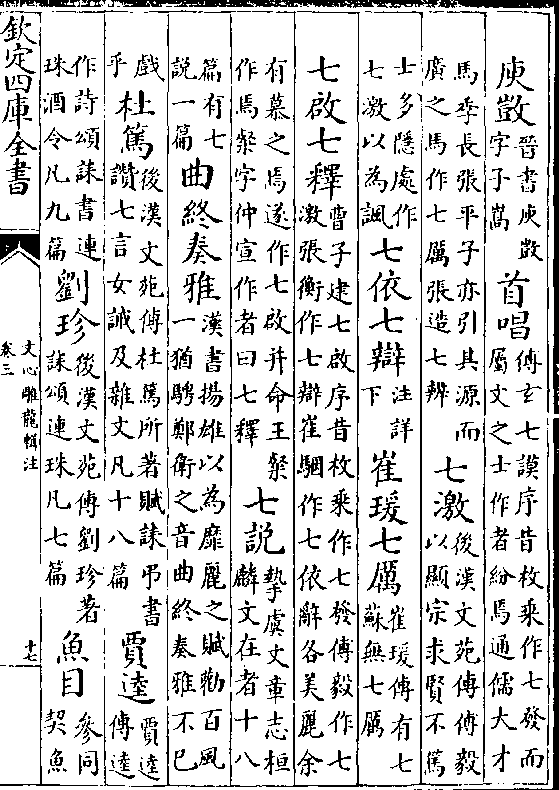 庾敳晉書庾敳字子嵩首唱傅玄七謨序昔枚乘作七發而屬文之士作者紛焉通儒大才
馬季長張平子亦引其源而廣之馬作七厲張造七辨七激後漢文苑傳傅毅以顯宗求賢不篤
士多隱處作七激以為諷七依七辯注詳下崔瑗七厲崔瑗傳有七蘇無七厲
七啟七釋曹子建七啟序昔枚乘作七發傅毅作七激張衡作七辯崔駰作七依辭各美麗余
有慕之焉遂作七啟并命王粲作焉粲字仲宣作者曰七釋七説摯虞文章志桓麟文在者十八
篇有七説一篇曲終奏雅漢書揚雄以為靡麗之賦勸百風一猶騁鄭衛之音曲終奏雅不已
戲乎杜篤後漢文苑傳杜篤所著賦誄弔書讚七言女誡及雜文凡十八篇賈逵賈逵傳逵
作詩頌誄書連珠酒令凡九篇劉珍後漢文苑傳劉珍著誄頌連珠凡七篇魚目參同契魚
欽定四庫全書
文心雕龍輯注
卷三
十七